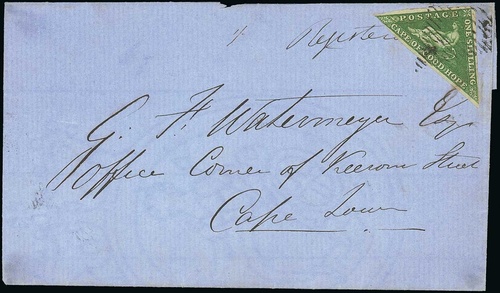 Registered
POSTAGE
ONE SHILLING
CAPE OF GOOD HOPE
G. F. Watermeyer Esqr
Office Corner of Keerom Street
Cape Town